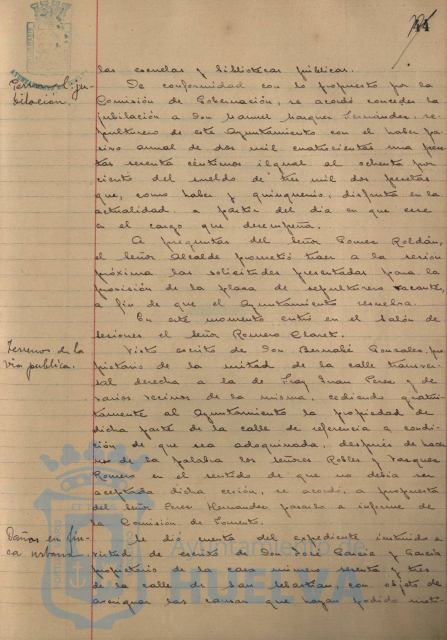 44
las escuelas y bibliotecas públicas.
Personal. ju-
bilación.
De conformidad con lo propuesto por la
Comisión de Gobernación, se acordó conceder la
jubilación a Don Manuel Marquez Fernández, se-
pulturero de este Ayuntamiento con el haber pa-
sivo anual de dos mil cuatrocientas una pese-
tas sesenta céntimos igual al ochenta por
ciento del sueldo de tres mil dos pesetas
que, como haber y quinquenio, disfruta en la
actualidad a partir del día en que cese
en el cargo que desempeña.
A preguntas del Señor Gomez Roldán,
el Señor Alcalde prometió traer a la sesión
próxima las solicitudes presentadas para la
provisión de la plaza de sepulturero vacante,
a fin de que el Ayuntamiento resuelva.
En este momento entró en el Salón de
sesiones el Señor Romero Claret.
Terrenos de la
vía pública.
Visto escrito de Don Bernabé Gonzalez, pro-
pietario de la mitad de la calle transver-
sal derecha a la de Fray Juan Perez y de
varios vecinos de la misma, cediendo gratui-
tamente al Ayuntamiento la propiedad de
dicha parte de la calle de referencia a condi-
ción de que sea adoquinada, después de hacer
uso de la palabra los señores Robles y Vazquez
Romero en el sentido de que no debía ser
aceptada dicha cesión, se acordó, a propuesta
del Señor Perez Hernandez pasarlo a informe de
la Comisión de Fomento.
Daños en fin-
ca urbana.
Se dió cuenta del expediente instruido a
virtud de escrito de Don José Garcia y Garcia
propietario de la casa número sesenta y tres
de la calle de San Sebastián, con objeto de
averiguar las causas que hayan podido moti-
Ayuntamiento de
HUELVA